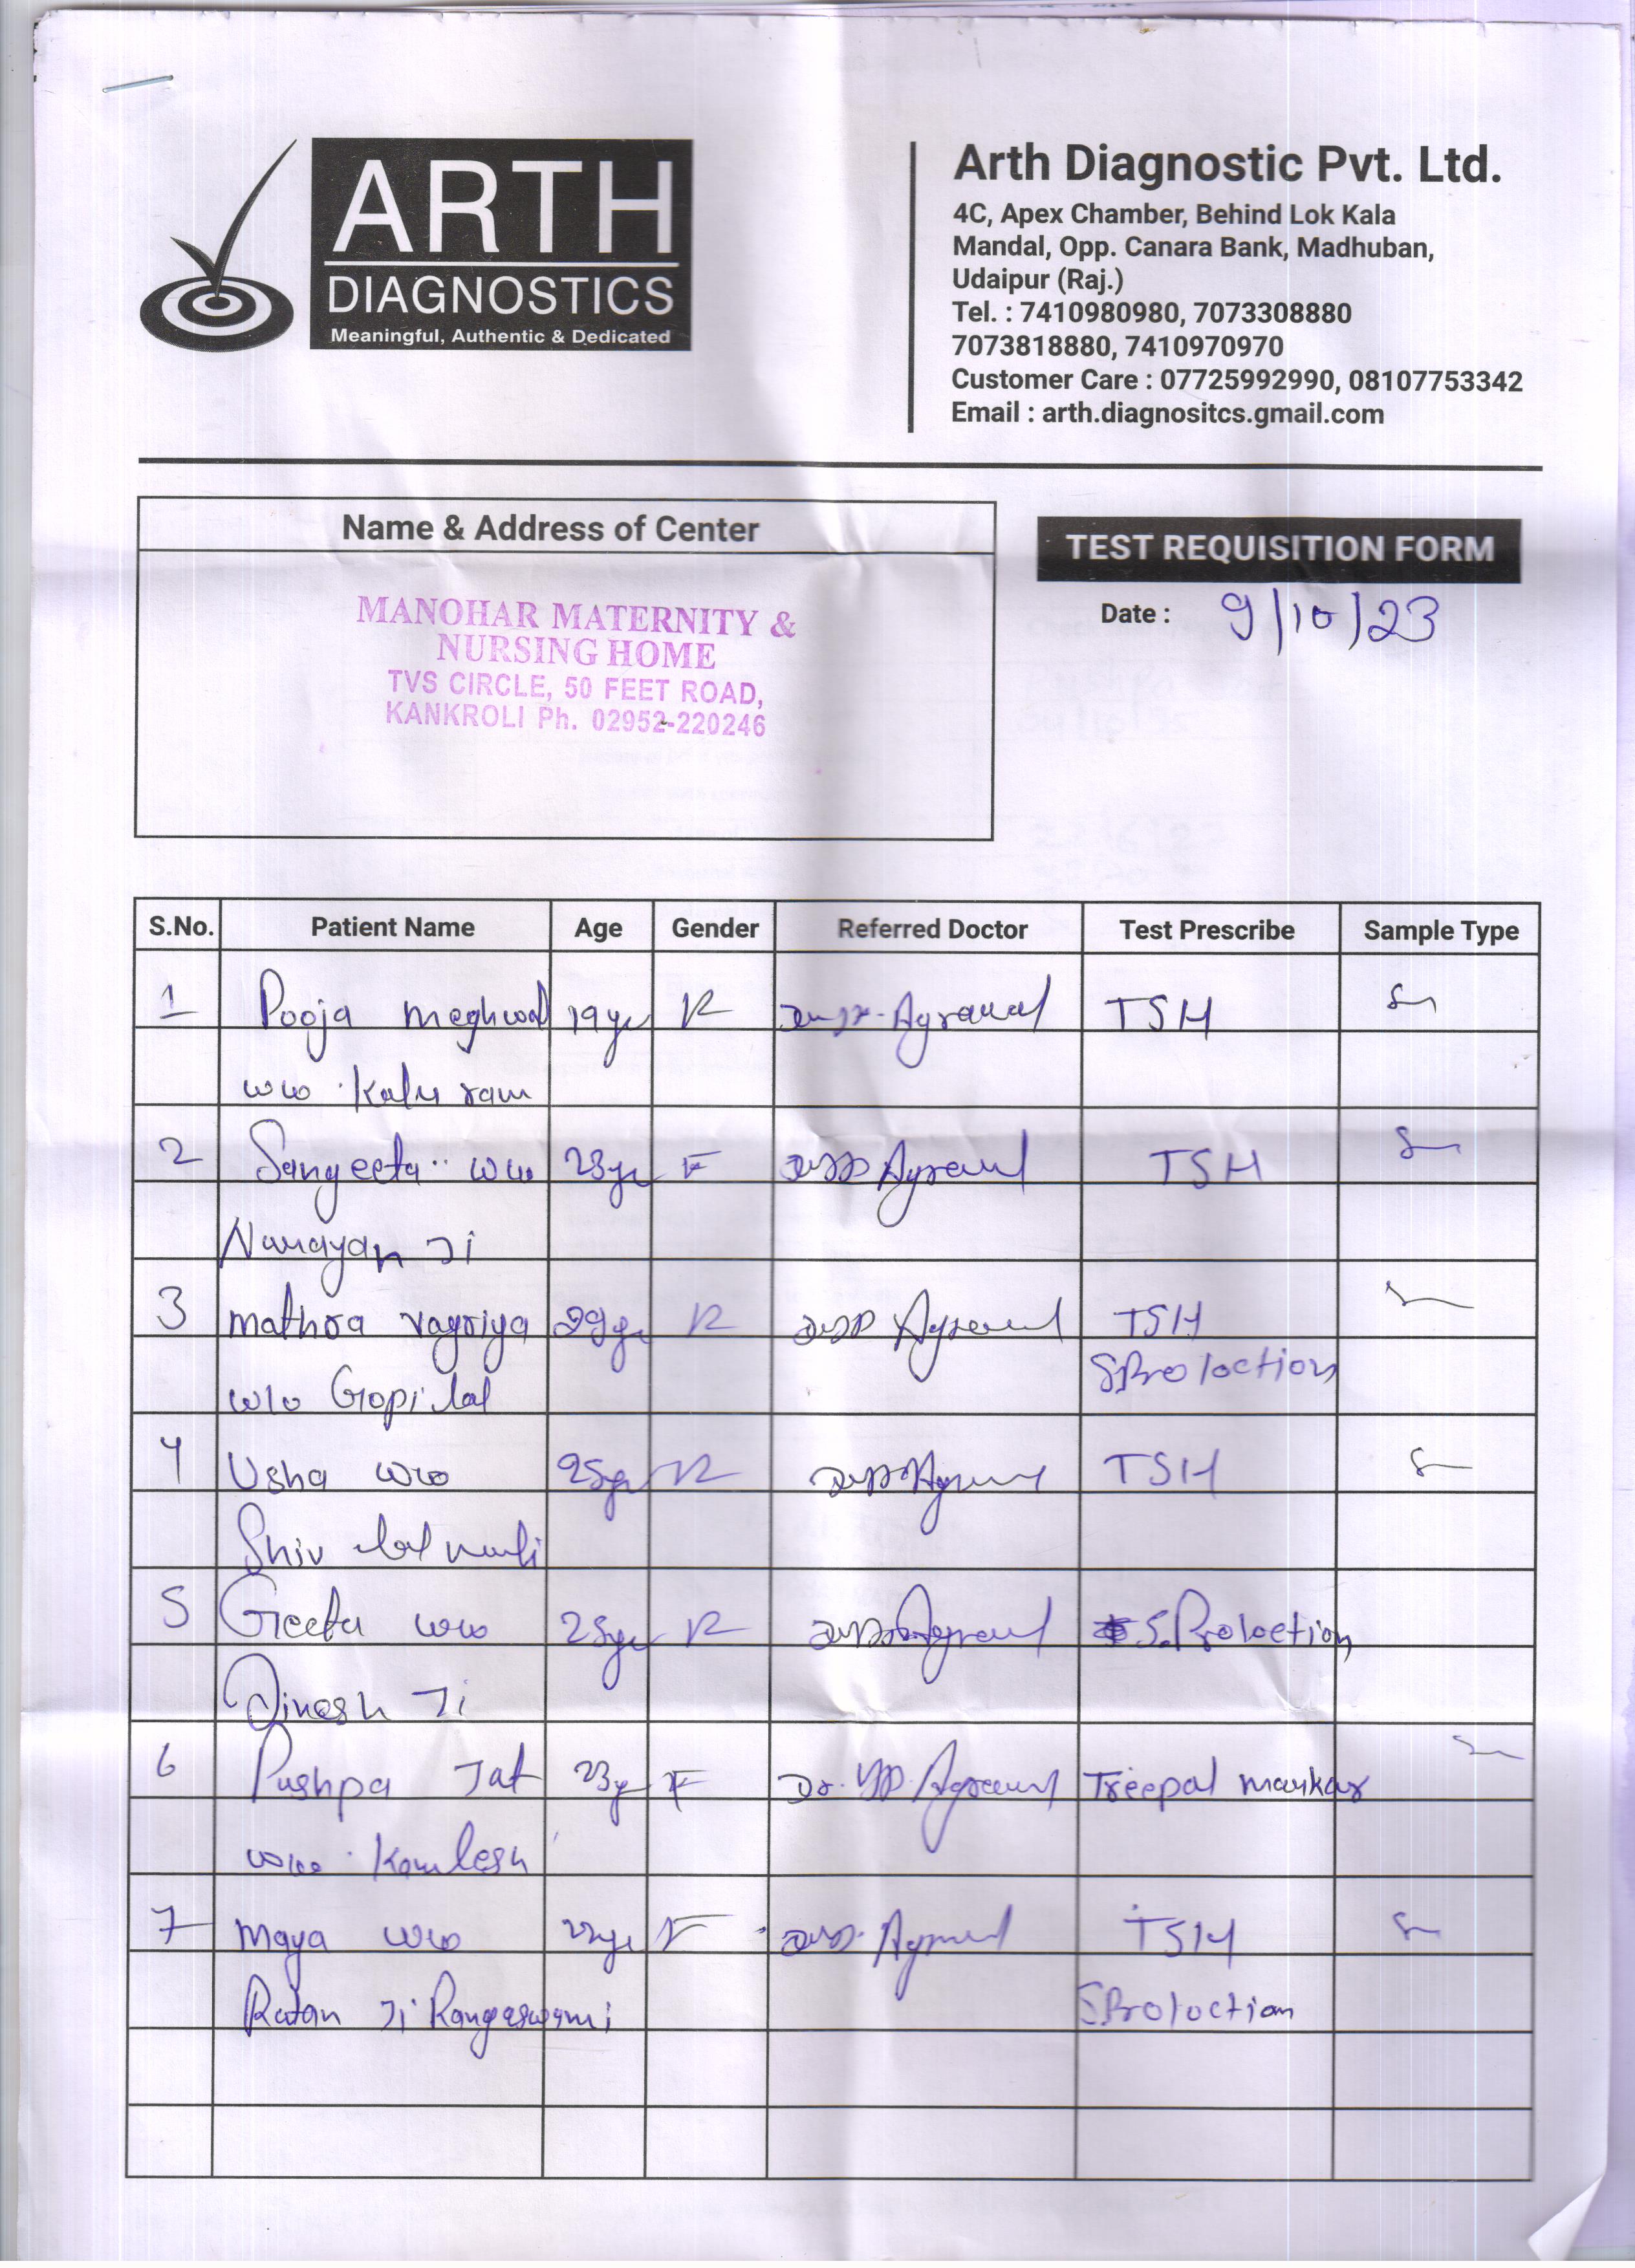 ARTH
DIAGNOSTICS
Meaningful, Authentic & Dedicated
Arth Diagnostic Pvt. Ltd.
4C, Apex Chamber, Behind Lok Kala
Mandal, Opp. Canara Bank, Madhuban,
Udaipur (Raj.)
Tel. : 7410980980, 7073308880
7073818880, 7410970970
Customer Care : 07725992990, 08107753342
Email : arth.diagnositcs.gmail.com
Name & Address of Center
MANOHAR MATERNITY &
NURSING HOME
TVS CIRCLE, 50 FEET ROAD,
KANKROLI Ph. 02952-220246
TEST REQUISITION FORM
Date : 9/10/23
S.No. Patient Name Age Gender Referred Doctor Test Prescribe Sample Type
1 Pooja meghwal 19yr F Agrawal TSH
w/o Kalu ram
2 Sangeeta w/o 23yr F Agrawal TSH
Narayan Ji
3 mathra vagriya 29yr F Agrawal TSH
w/o Gopi lal S Proloction
4 Usha w/o 25yr F Agrawal TSH
Shiv lal mali
5 Geeta w/o 25yr F Agrawal S. Proloction
Dinesh Ji
6 Pushpa Jat 23y F Dr. Agrawal Treepal markar
w/o Kamlesh
7 maya w/o 22yr F Agrawal TSH
Ratan Ji Rangaswami S Proloction